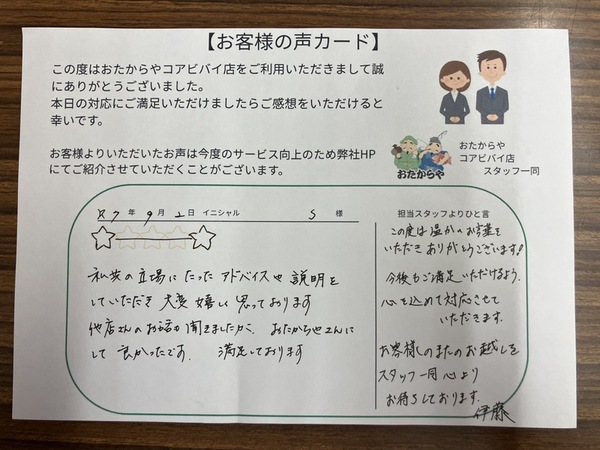 【お客様の声カード】
この度はおたからやコアビバイ店をご利用いただきまして誠
にありがとうございました。
本日の対応にご満足いただけましたらご感想をいただけると
幸いです。
お客様よりいただいたお声は今度のサービス向上のため弊社HP
にてご紹介させていただくことがございます。
おたからや
おたからや
コアビバイ店
スタッフ一同
R7年9月2日 イニシャル S 様
私共の立場にたったアドバイスや説明を
していただき大変嬉しく思っております
他店さんのお話も聞きましたが、おたからやさんに
して良かったです。 満足しております
担当スタッフよりひと言
この度は温かいお言葉を
いただきありがとうございます!
今後もご満足いただけるよう、
心を込めて対応させて
いただきます。
お客様のまたのお越しを
スタッフ一同心より
お待ちしております。
伊藤